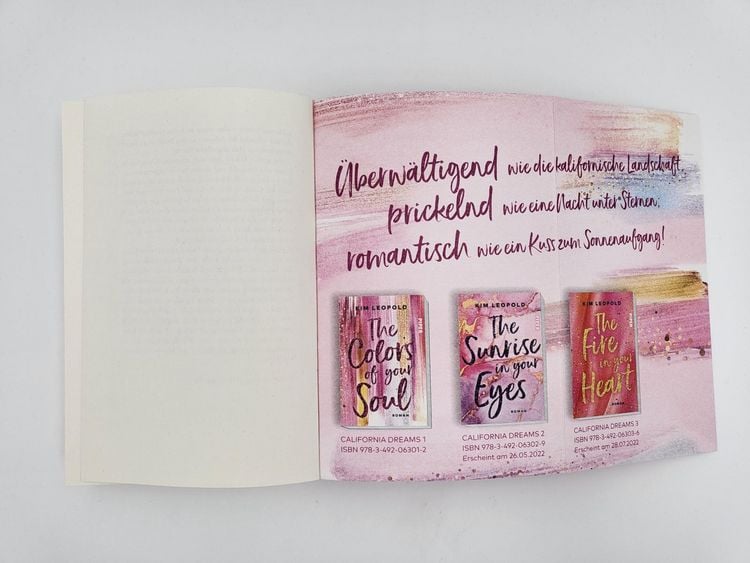 Überwältigend wie die kalifornische Landschaft,
prickelnd wie eine Nacht unter Sternen,
romantisch wie ein Kuss zum Sonnenaufgang!
KIM LEOPOLD
The
Colors
of your
Soul
ROMAN
PIPER
CALIFORNIA DREAMS 1
ISBN 978-3-492-06301-2
KIM LEOPOLD
The
Sunrise
in your
Eyes
ROMAN
PIPER
CALIFORNIA DREAMS 2
ISBN 978-3-492-06302-9
Erscheint am 26.05.2022
KIM LEOPOLD
The
Fire
in your
Heart
ROMAN
PIPER
CALIFORNIA DREAMS 3
ISBN 978-3-492-06303-6
Erscheint am 28.07.2022